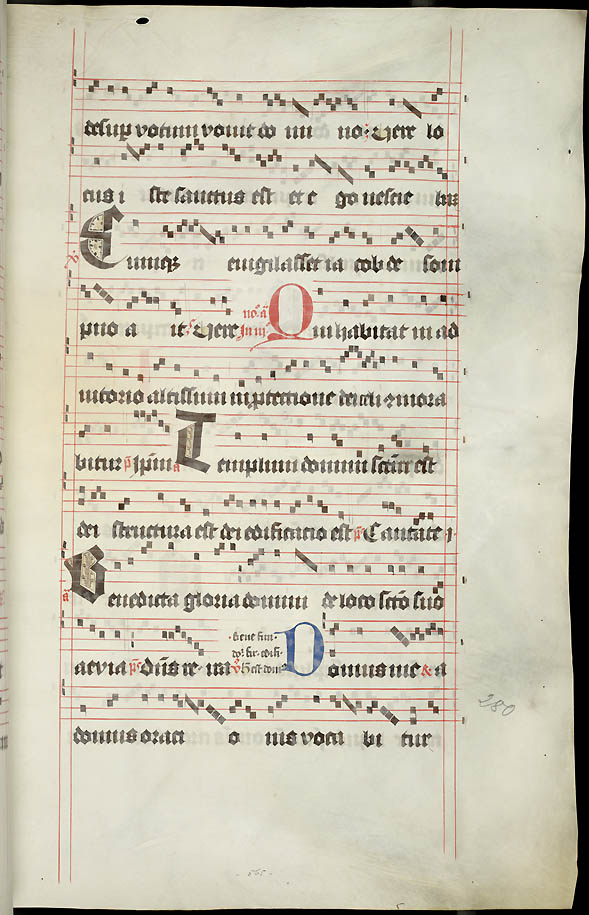 desup votum vovit do mi no: Vere lo
cus i ste sanctus est et e go nescie ba
Cumq3 evigilasset ia cob de som
pno a it: Vere Qui habitat in ad
iutorio altissimi in ptectione dei celi 2 mora
bitur Templum domini sctm est
dei structura est dei edificatio est Cantate
Benedicta gloria domini de loco scto suo
aevia Domus me a
domus orati o nis voca bi tur
280
565